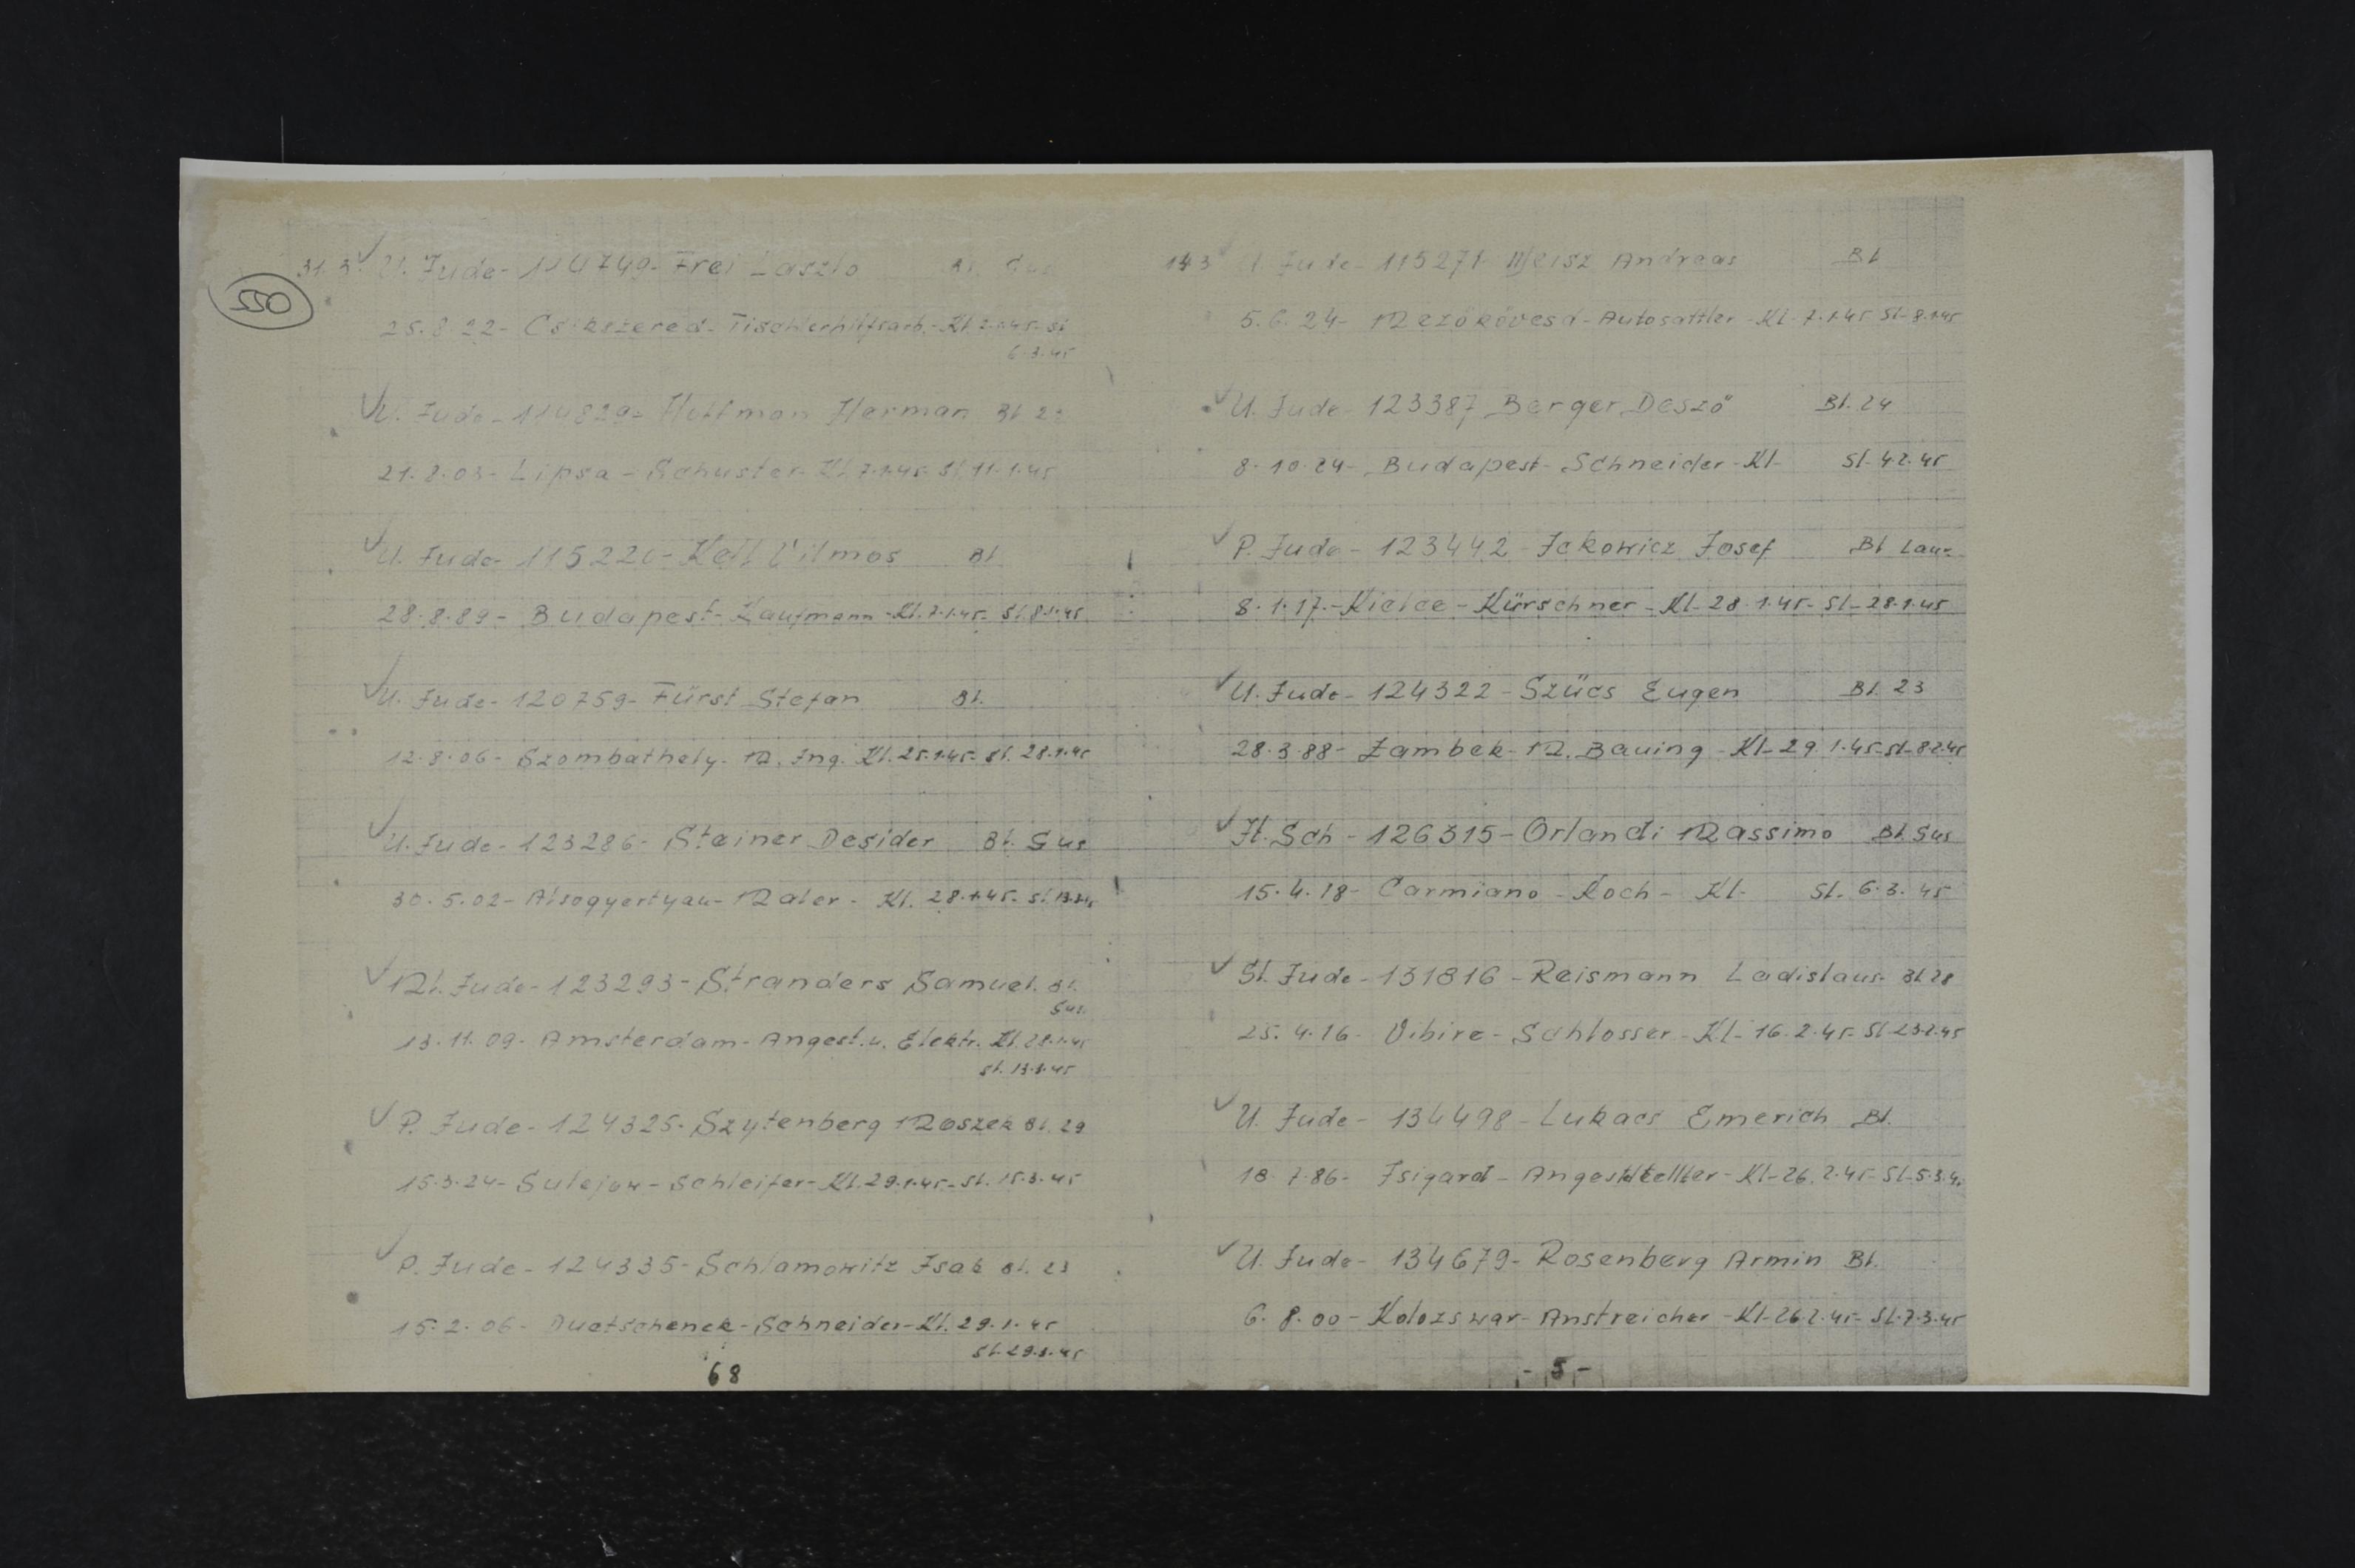 055
31.3. U. Jude - 114749 - Frei Laszlo Bl. Gus
25.8.22 - Csikszered - Tischlerhilfsarb. - Kl. 2.1.45 - Sl.
6.3.45
U. Jude - 114829 - Hoffman Herman Bl. 23
21.8.03 - Lipsa - Schuster - Kl. 7.1.45 Sl. 11.1.45
U. Jude - 115220 - Kell Vilmos Bl.
28.8.89 - Budapest - Kaufmann - Kl. 7.1.45 - Sl. 8.1.45
U. Jude - 120759 - Fürst Stefan Bl.
12.8.06 - Szombathely - M. Ing. Kl. 25.1.45 - Sl. 28.1.45
U. Jude - 123286 - Steiner Desider Bl. Gus
30.5.02 - Alsogyertyau - Maler - Kl. 28.1.45 - Sl.
Nl. Jude - 123293 - Stranders Samuel. Bl.
Gus.
13.11.09 - Amsterdam - Angest. u. Elektr. Kl. 28.1.45
Sl. 13.3.45
P. Jude - 124325 - Szytenberg Moszek Bl. 29
15.3.24 - Sulejow - Schleifer - Kl. 29.1.45 - Sl. 15.3.45
P. Jude - 124335 - Schlamowitz Isak Bl. 23
15.2.06 - Duetschenek - Schneider - Kl. 29.1.45
Sl. 29.3.45
68
143 U. Jude - 115271 Weisz Andreas Bl
5.6.24 - Mezökövesd - Autosattler - Kl - 7.1.45 Sl - 8.1.45
U. Jude - 123387 Berger Deszö Bl. 24
8.10.24 - Budapest - Schneider - Kl - Sl - 4.2.45
P. Jude - 123442 - Jakowicz Josef Bl Laur
8.1.17. - Kielce - Kürschner - Kl - 28.1.45 - Sl - 28.1.45
U. Jude - 124322 - Szücs Eugen Bl. 23
28.3.88 - Zambek - M. Bauing - Kl - 29.1.45 - Sl - 8.2.45
It. Sch - 126315 - Orlandi Massimo Bl. Gus
15.4.18 - Carmiano - Koch - Kl - Sl. 6.3.45
Sl. Jude - 131816 - Reismann Ladislaus - Bl. 28
25.4.16 - Vibire - Schlosser - Kl - 16.2.45 - Sl - 23.2.45
U. Jude - 134498 - Lukacs Emerich Bl.
18.7.86 - Isigard - Kl - 26.2.45 - Sl - 5.3.4
U. Jude - 134679 - Rosenberg Armin Bl.
6.8.00 - Kolozswar - Anstreicher - Kl - 26.2.45 - Sl - 7.3.45
- 5 -